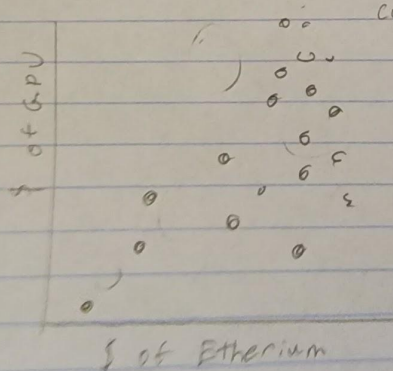 $ of GPU
$ of Etherium